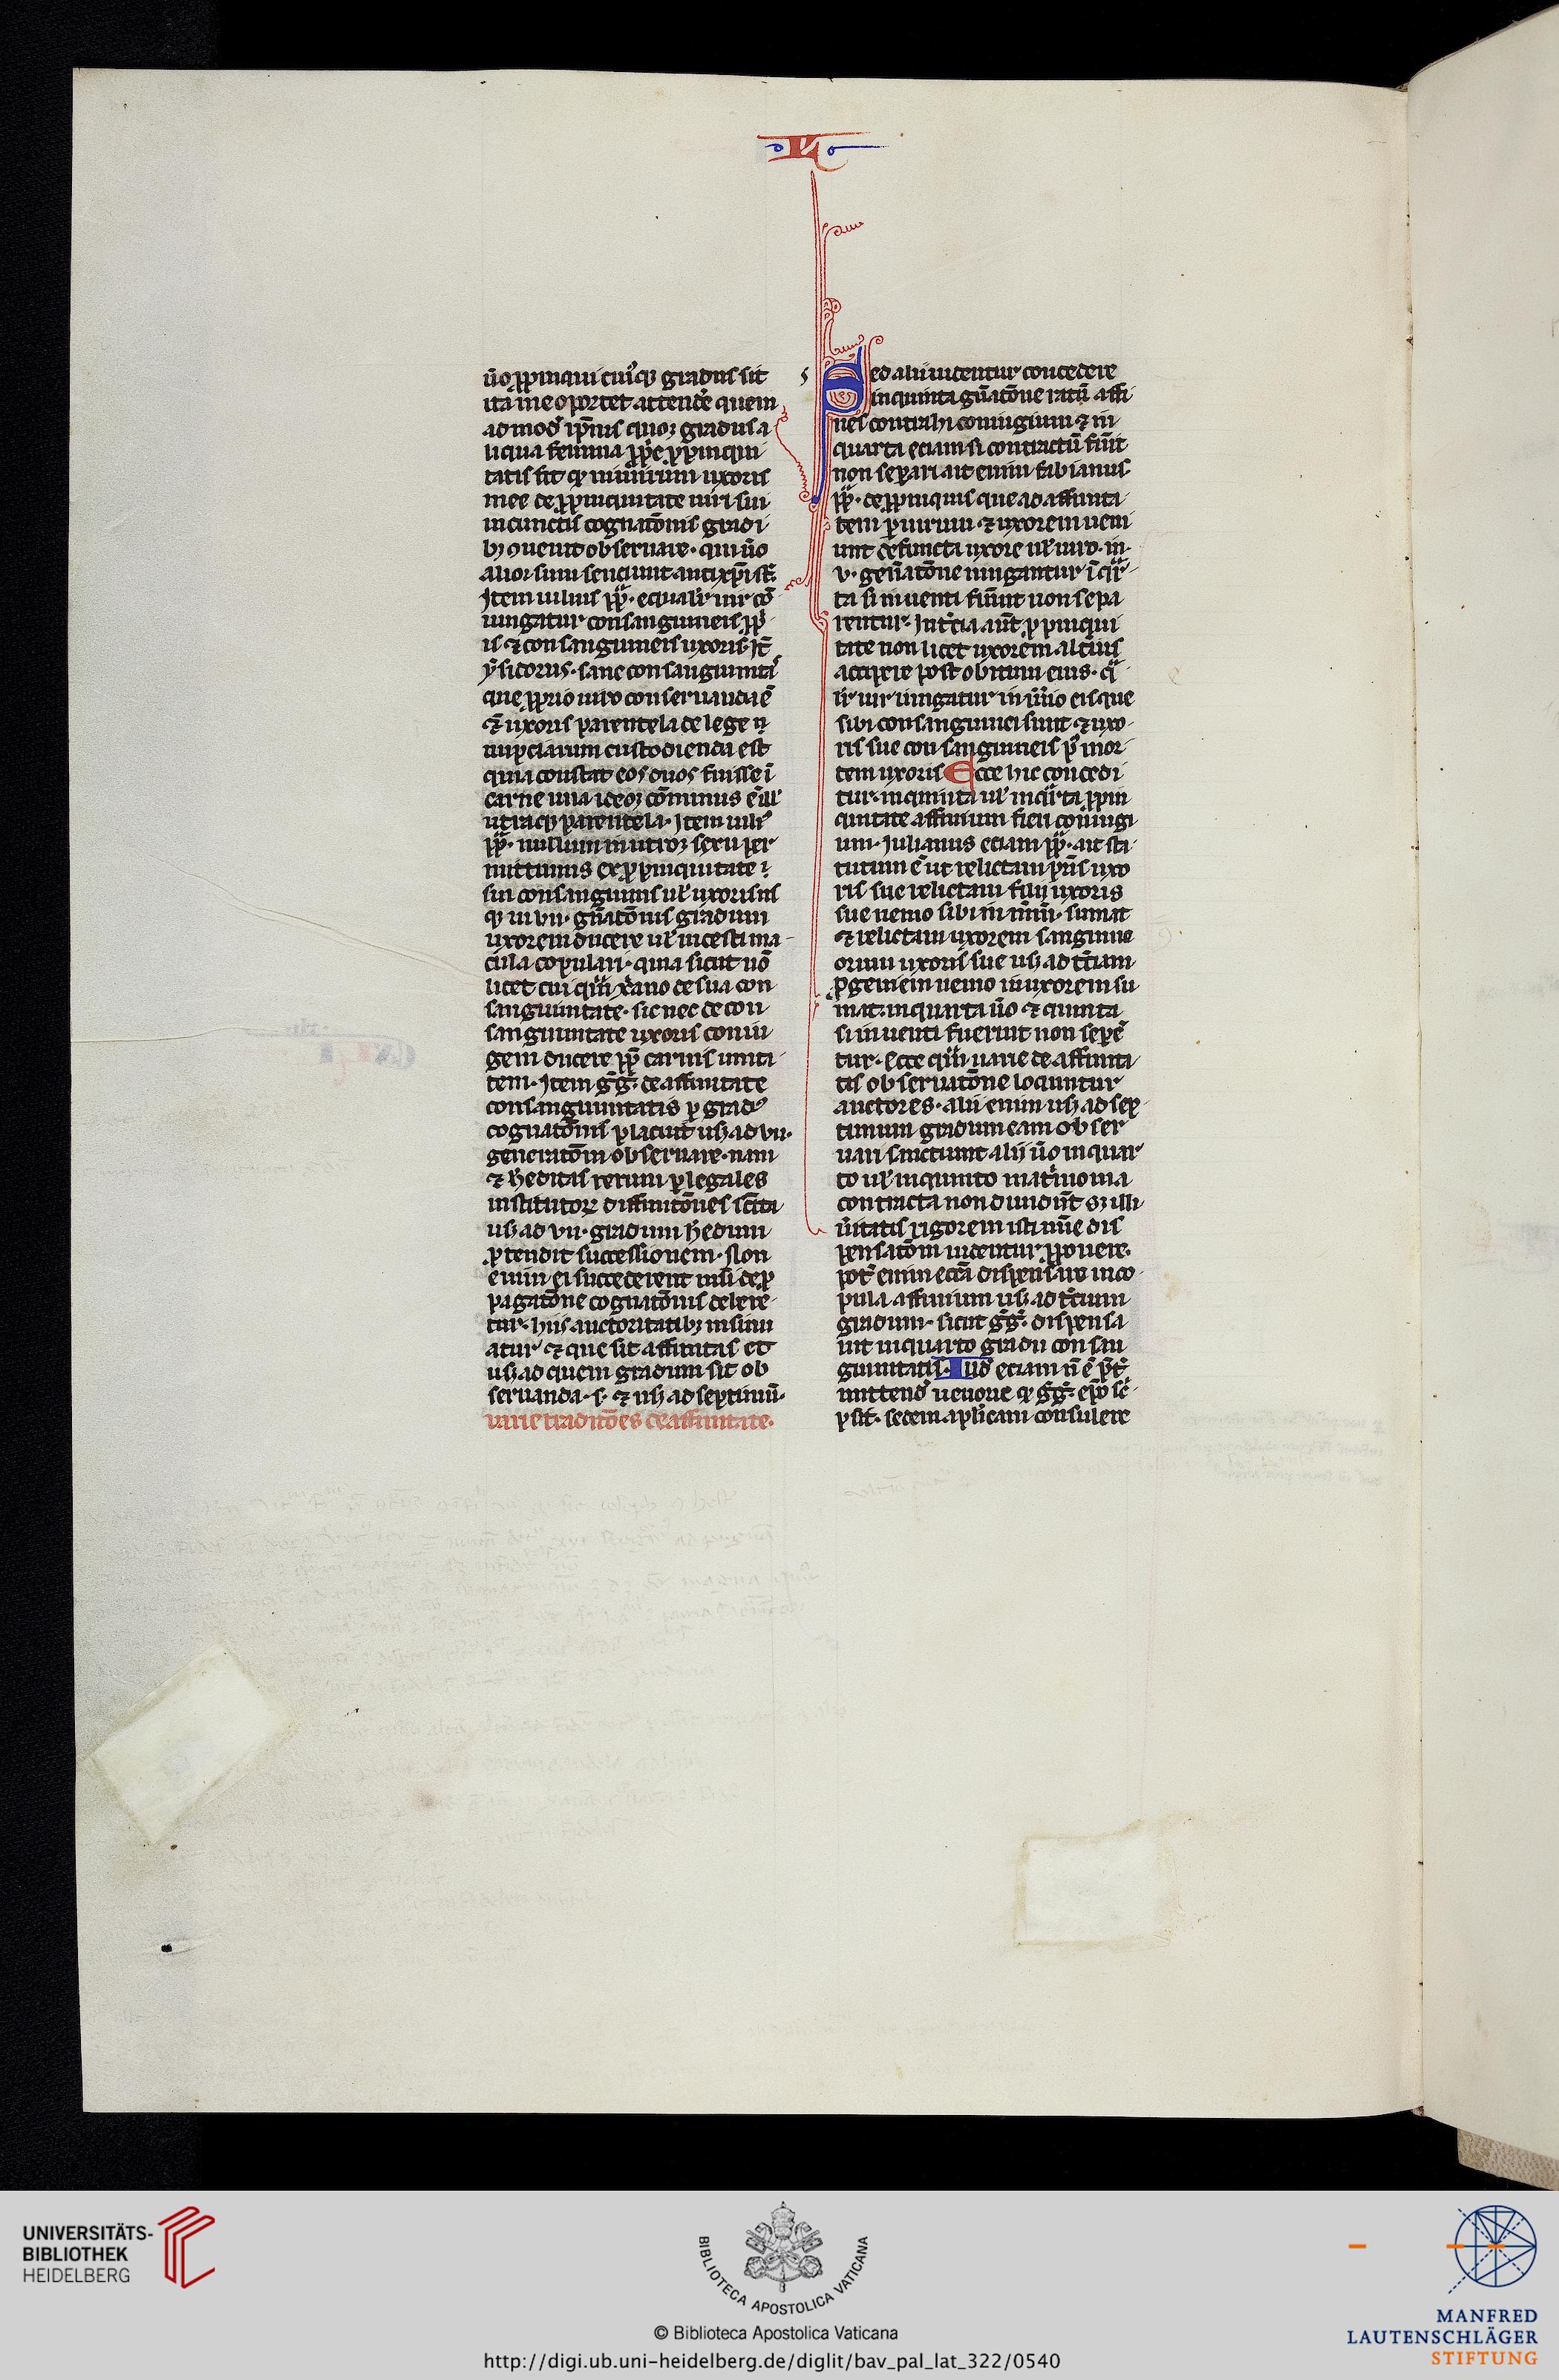 L
ũo ꝓpinqui cuiꝰqꝫ gradus sit
ita me oportet attendẽ quem
admodͦ ip̃ius quoꝫ gradus a
liqua femina ꝓp̃e ꝓpinqui
tatis sit qͥ nimirum uxoris
mee de ꝓpinquitate uiri sui
in cunctis cognatõnis gradi
bꝫ ꝯuenit obseruare · qui ũo
aliorsum senciunt antixp̃i sẽ.
Item iulius pp̃ · equalit͛ uir cõ
iungatur consanguineis ꝓp̃
is ⁊ consanguineis uxoris. It̃
ysidorus · sane consanguinitas
que ꝓprio uiro conseruanda ẽ
⁊ uxoris parentela de lege n
nupciarum custodienda est
quia constat eos duos fuisse ĩ
carne una ideoꝫ cõmunis ẽ ill͛
utraqꝫ parentela. Item iuli͛
pp̃. nullum in utroꝫ sexu per
mittimus ex ꝓpinquitate ·
sui consanguinis ul̃ uxoris us
qꝫ in vii · gñatõnis gradum
uxorem ducere ul̃ incesti ma-
cula copulari · quia sicut nõ
licet cuiqͣm xp̃iano de sua con
sanguinitate · sic nec de con
sanguinitate uxoris coniu
gem ducere ꝓp̃ carnis unita
tem. Item g̃g̃. de affinitate
consanguinitatis ꝑ gradꝰ
cognatõnis placuit usꝫ ad vii·
generatõm obseruare · nam
⁊ heditas rerum ꝑ legales
institutoꝝ diffinitõnes scita
usꝫ ad vii · gradum hedum
ꝓtendit successionem · Non
enim ei succederent nisi de ꝓ
pagatõne cognatõnis debere
tur. hiis auctoritatibꝫ insinu
atur ⁊ que sit affinitas et
usꝫ ad quem gradum sit ob
seruanda · s · ⁊ usꝫ ad septimũ.
varie traditões de affinitate.
s
Sed alii uidentur concedere
in quinta gñatõne ratũ affi
nes contrahi coniugium ⁊ in
quarta eciam si contractũ fũit
non separi ait enim fabianus
pp̃ · de ꝓpinquis que ad affinita
tem ꝑ uirum ⁊ uxorem ueni
unt defuncta uxore ul̃ uiro · in
v · geñatõne iungantur ĩ qͣr
ta si inuenti fũint non sepa
rentur. In t̃cia aũt ꝓpinqui
tate non licet uxorem alt̃ius
accipere post obitum eius · eqͣ
lit͛ uir iungatur in m̃io eis que
sibi consanguinei sunt ⁊ uxo
ris sue consanguineis p̃ mor
tem uxoris Ecce hic concedi
tur · in quinta ul̃ in qͣrta ꝓpin
quitate affinium fieri coniugi
um · Iulianus eciam pp̃ · ait sta
tutum ẽ ut relictam pr̃is uxo
ris sue relictam filij uxoris
sue nemo sibi in m̃m̃ · sumat
⁊ relictam uxorem sanguine
orum uxoris sue usꝫ ad t̃ciam
ꝓgeniem nemo in uxorem su
mat · in quarta ũo ⁊ quinta
si inuenti fuerint non sepeẽ
tur. Ecce qͣliꝉ uarie de affinita
tis obseruatõne locuntur
auctores · alii enim usꝫ ad sep
timum gradum eam obser
uari sanciunt alij ũo in quar
to ul̃ in quinto matrimonia
contracta non diuidũt sꝫ illi
ũitatis rigorem isti m̃ie dis
pensatõm uidentur ꝓponere.
pot̃ enim eccã dispensare in co
pula affinium usꝫ ad t̃cium
gradum · sicut g̃g̃. dispensa
uit in quarto gradu consan
guinitatis. Iudͩ eciam ñ ẽ p̃t̃
mittendͦ uenone qͥ g̃g̃ · ep̃o se-
psit · sedem aplicam consulere
UNIVERSITÄTS-
BIBLIOTHEK
HEIDELBERG
BIBLIOTECA APOSTOLICA VATICANA
© Biblioteca Apostolica Vaticana
http://digi.ub.uni-heidelberg.de/diglit/bav_pal_lat_322/0540
MANFRED
LAUTENSCHLÄGER
STIFTUNG